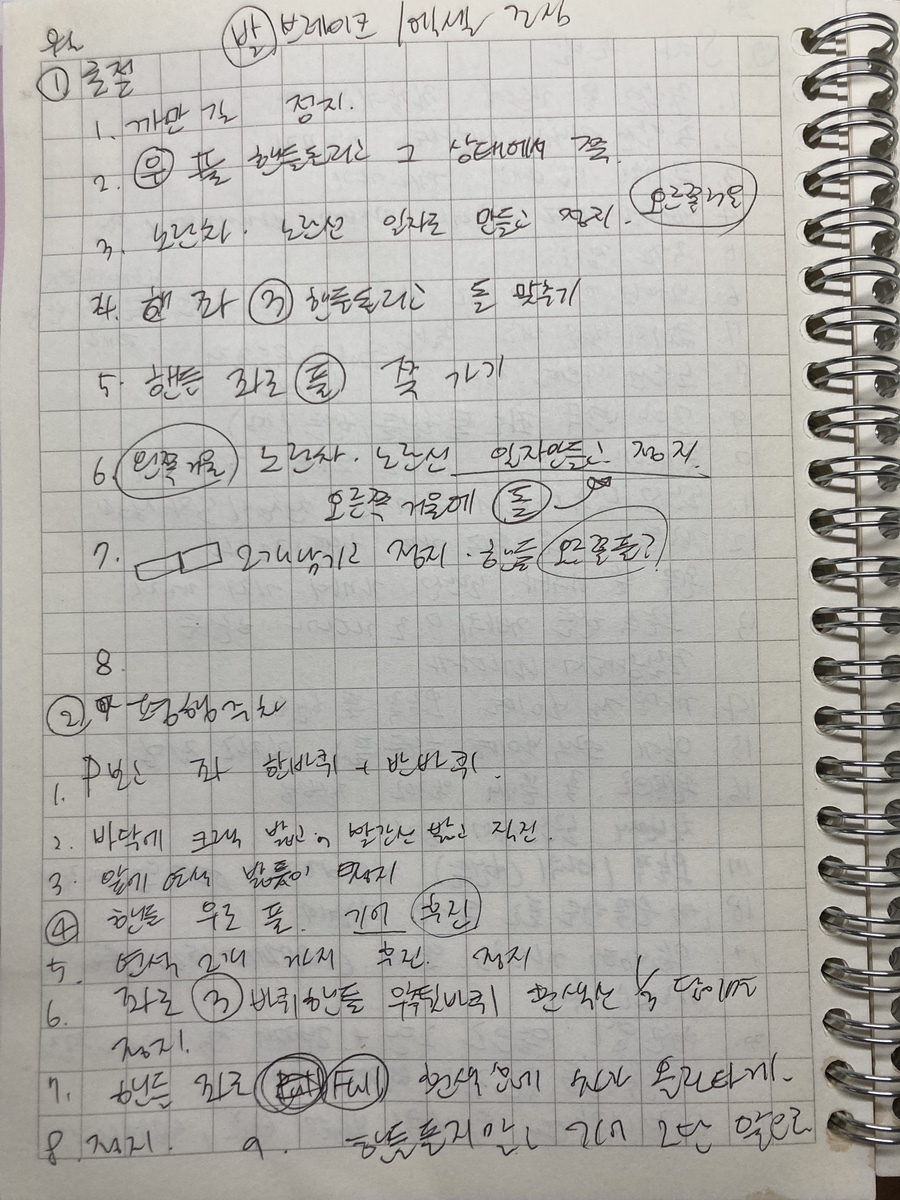 발 브레이크 / 엑셀 조심
① 굴절
1. 까만 길 정지.
2. 우 풀 핸들돌리고 그 상태에서 쭉.
3. 노란차. 노란선 일자로 만들고 정지. 오른쪽거울
4. 핸 좌 ③ 핸들돌리고 돌 맞추기
5. 핸들 좌로 풀 쭉 가기
6. 왼쪽거울 노란차. 노란선 일자만들고 정지.
오른쪽 거울에 돌
7. 2개남기고 정지. 핸들 오른쪽
8.
② 평행주차
1. P보고 좌 한바퀴 + 반바퀴.
2. 바닥에 크랙 밟고 빨간선 밟고 직진.
3. 앞에 연석 정지
④ 핸들 우로 풀. 기어 후진
5. 연석 2개 까지 후진. 정지
6. 좌로 ③ 바퀴핸들 우측뒷바퀴 흰색선
정지.
7. 핸들 좌로 Full 흰색선에 올라타게.
8. 정지. 9. 핸들풀지말고 기어 2단 앞으로